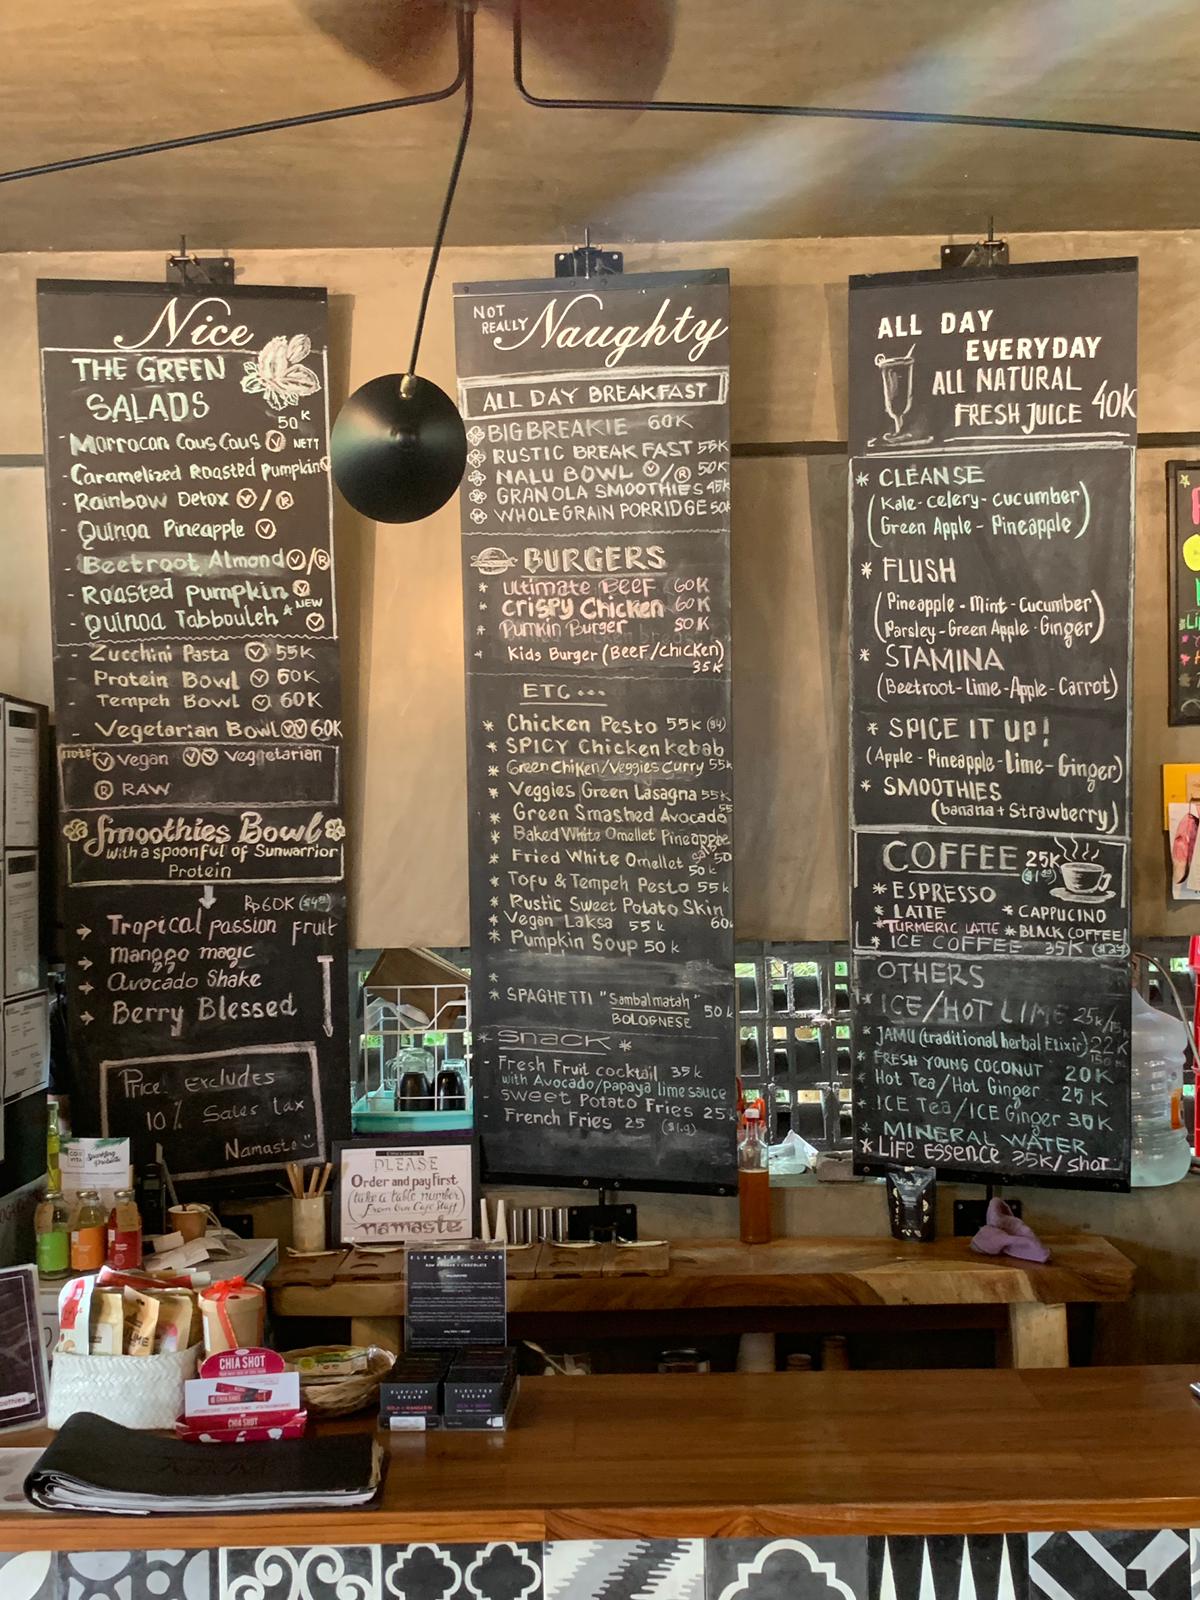 Nice
THE GREEN
SALADS
50K
Morrocan Cous Cous V NETT
Caramelized Roasted Pumpkin
Rainbow Detox V / R
Quinoa Pineapple V
Beetroot Almond V/R
Roasted Pumpkin V
Quinoa Tabbouleh * NEW V
Zucchini Pasta V 55K
Protein Bowl V 60K
Tempeh Bowl V 60K
Vegetarian Bowl VV 60K
note:
V Vegan VV Vegnetarian
R RAW
Smoothies Bowl
with a spoonful of Sunwarrior
Protein
Rp60K
Tropical passion fruit
Manggo magic
Avocado Shake
Berry Blessed
Price Excludes
10% Sales tax
Namaste
NOT
REALLY Naughty
ALL DAY BREAKFAST
BIG BREAKIE 60K
RUSTIC BREAK FAST 55K
NALU BOWL V/R 50K
GRANOLA SMOOTHIES 45K
WHOLEGRAIN PORRIDGE 50K
BURGERS
* ultimate BEEF 60K
* CRISPY Chicken 60K
* Pumkin Burger 50K
Kids Burger (BEEF/chicken)
35K
ETC ...
* Chicken Pesto 55K ($4)
* SPICY Chicken kebab
* Green Chiken/Veggies Curry 55K
* Veggies Green Lasagna 55K
* Green Smashed Avocado 55
* Baked White Omellet Pineappe
* Fried White Omellet 50K
* Tofu & Tempeh Pesto 55K
* Rustic Sweet Potato Skin
* Vegan Laksa 55K 60
* Pumpkin Soup 50K
*
* SPAGHETTI "Sambal matah" 50K
BOLOGNESE
* Snack *
- Fresh Fruit cocktail 35K
with Avocado/papaya lime sauce
- Sweet Potato Fries 25K
- French Fries 25 ($1.9)
ALL DAY
EVERYDAY
ALL NATURAL
FRESH JUICE 40K
* CLEANSE
(Kale-celery-cucumber
Green Apple - Pineapple)
* FLUSH
(Pineapple-Mint-Cucumber
Parsley-Green Apple-Ginger)
* STAMINA
(Beetroot-Lime-Apple-Carrot)
* SPICE IT UP!
(Apple-Pineapple-Lime-Ginger)
* SMOOTHIES
(banana + Strawberry)
COFFEE 25K
* ESPRESSO
* LATTE * CAPPUCINO
*TURMERIC LATTE *BLACK COFFEE
* ICE COFFEE 35K
OTHERS
* ICE/HOT LIME 25K/
* JAMU (traditional herbal Elixir) 22K
* FRESH YOUNG COCONUT 20K
* Hot Tea/Hot Ginger 25K
* ICE Tea/ICE Ginger 30K
* MINERAL WATER
* Life Essence 35K/shot
PLEASE
Order and pay First
(take a table number
from Our Cafe Staff)
namaste
ELEVATED CACAO
CHIA SHOT
CHIA SHOT
ELEVATED
CACAO
ELEVATED
CACAO